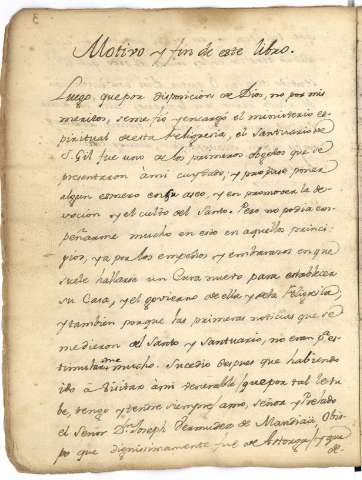 3
Motivo y fin de este libro.
Luego que por disposicion de Dios, no por mis
meritos, se me fió y encargó el ministerio es-
piritual de esta feligresia, el Santuario de
S. Gil fue uno de los primeros objetos que se
presentaron á mi cuydado, y propuse poner
algun esmero en su aseo, y en promover la de-
vocion y el culto del Santo. Pero no podia em-
peñarme mucho en esto en aquellos princi-
pios, ya por los empeños y embarazos en que
suele hallarse un Cura nuevo para establecer
su Casa, y el govierno de ella y de la feligresia,
y tambien porque las primeras noticias que se
me dieron del Santo y Santuario, no eran p.ª es-
timularme mucho. Sucedio despues que habiendo
ido á visitar á mi venerable (que por tal le tu-
be, tengo y tendre siempre) amo, señor y Prelado
el Señor Dn. Joseph Bermudez de Mandiaá, Obis-
po que dignissimamente fue de Astorga, y que
de-